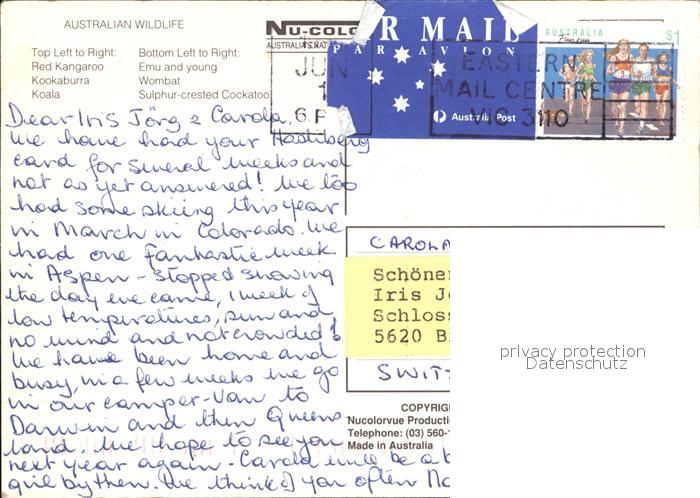 AUSTRALIAN WILDLIFE
Top Left to Right:
Red Kangaroo
Kookaburra
Koala
Bottom Left to Right:
Emu and young
Wombat
Sulphur-crested Cockatoo
NU-COLO
AUSTRALIA'S NAT
R MAIL
PAR AVION
Australia Post
AUSTRALIA
Fun run
$1
JUN
1
6.P
EASTERN
MAIL CENTRE
VIC 3110
Dear Iris Jörg & Carola,
We have had your Hasliberg
card for several weeks and
not as yet answered! We too
had some skiing this year
in March in Colorado. We
had one fantastic week
in Aspen - stopped snowing
the day we came, 1 week of
low temperatures, sun and
no wind and not crowded!
We have been home and
busy, in a few weeks we go
in our camper-van to
Darwin and then Queens
land. We hope to see you
next year again - Carola will be a b
girl by then. We think of you often
CAROLA
Schöner
Iris Jö
Schloss
5620 B
SWIT
privacy protection
Datenschutz
COPYRIG
Nucolorvue Production
Telephone: (03) 560-
Made in Australia